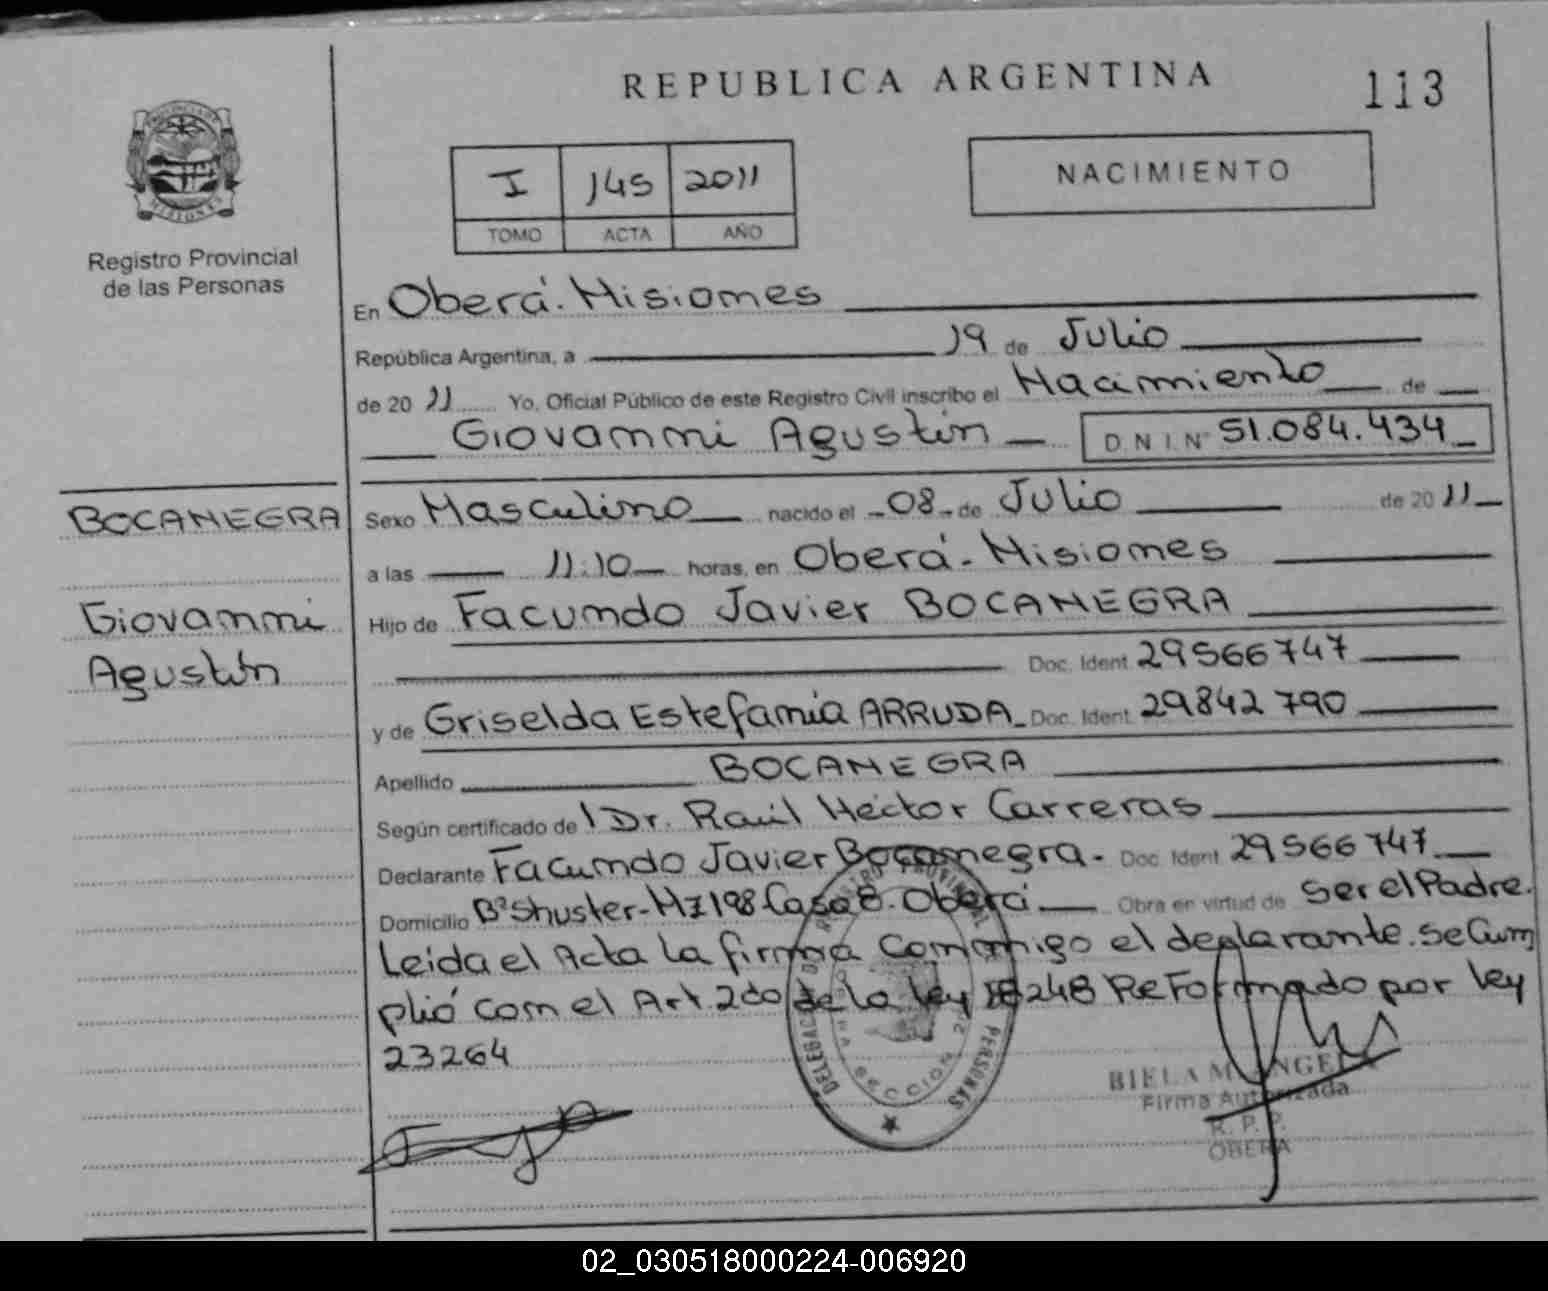 REPUBLICA ARGENTINA
113
I 145 2011
TOMO ACTA AÑO
NACIMIENTO
Registro Provincial
de las Personas
En Oberá. Misiones
República Argentina, a 19 de Julio
de 2011 Yo, Oficial Público de este Registro Civil inscribo el Nacimiento de
Giovanni Agustín D.N.I.Nº 51.084.434
BOCANEGRA
Giovanni
Agustín
Sexo Masculino nacido el 08 de Julio de 2011
a las 11:10 horas, en Oberá - Misiones
Hijo de Facundo Javier BOCANEGRA
Doc. Ident. 29566747
y de Griselda Estefania ARRUDA Doc. Ident. 29842790
Apellido BOCANEGRA
Según certificado de l Dr. Raúl Héctor Carreras
Declarante Facundo Javier Bocanegra. Doc. Ident. 29566747
Domicilio Bº Shuster-Mz198 Casa 8. Oberá Obra en virtud de Ser el Padre.
Leida el Acta la firma conmigo el declarante. se Cum
plió con el Art. 2do de la ley 18248 ReFormado por ley
23264
PERSONAS
SECCION
BIELA M. ANGELA
Firma Autorizada
R. P. P.
OBERA
02_030518000224-006920